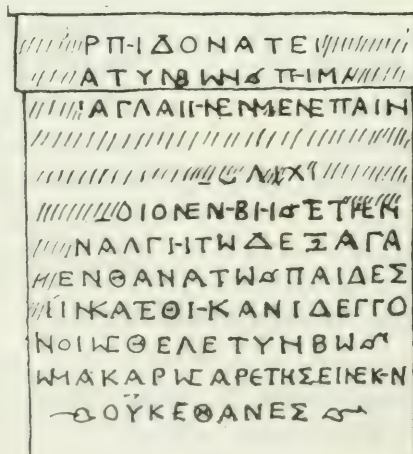 ΡΠΗΔΟΝΑΤΕΙ
ΑΤΥΝΒΩΝ
ΑΓΛΑΙΗΝΕΝΜΕΝΕΠΑΙΝ
ΟΙΟΝΕΝΒΗ
ΝΑΛΓΗΤΩΔΕΞΑΓΑ
ΕΝΘΑΝΑΤΩ ΠΑΙΔΕΣ
ΙΝΚΑΤΕΘΗΚΑΝΙΔΕΓΓΟ
ΝΟΙΩΣΘΕΛΕΤΥΝΒΩ
ΩΜΑΚΑΡΩΣΑΡΕΤΗΣΕΙΝΕΚΗΝ
ΟΫΚΕΘΑΝΕΣ